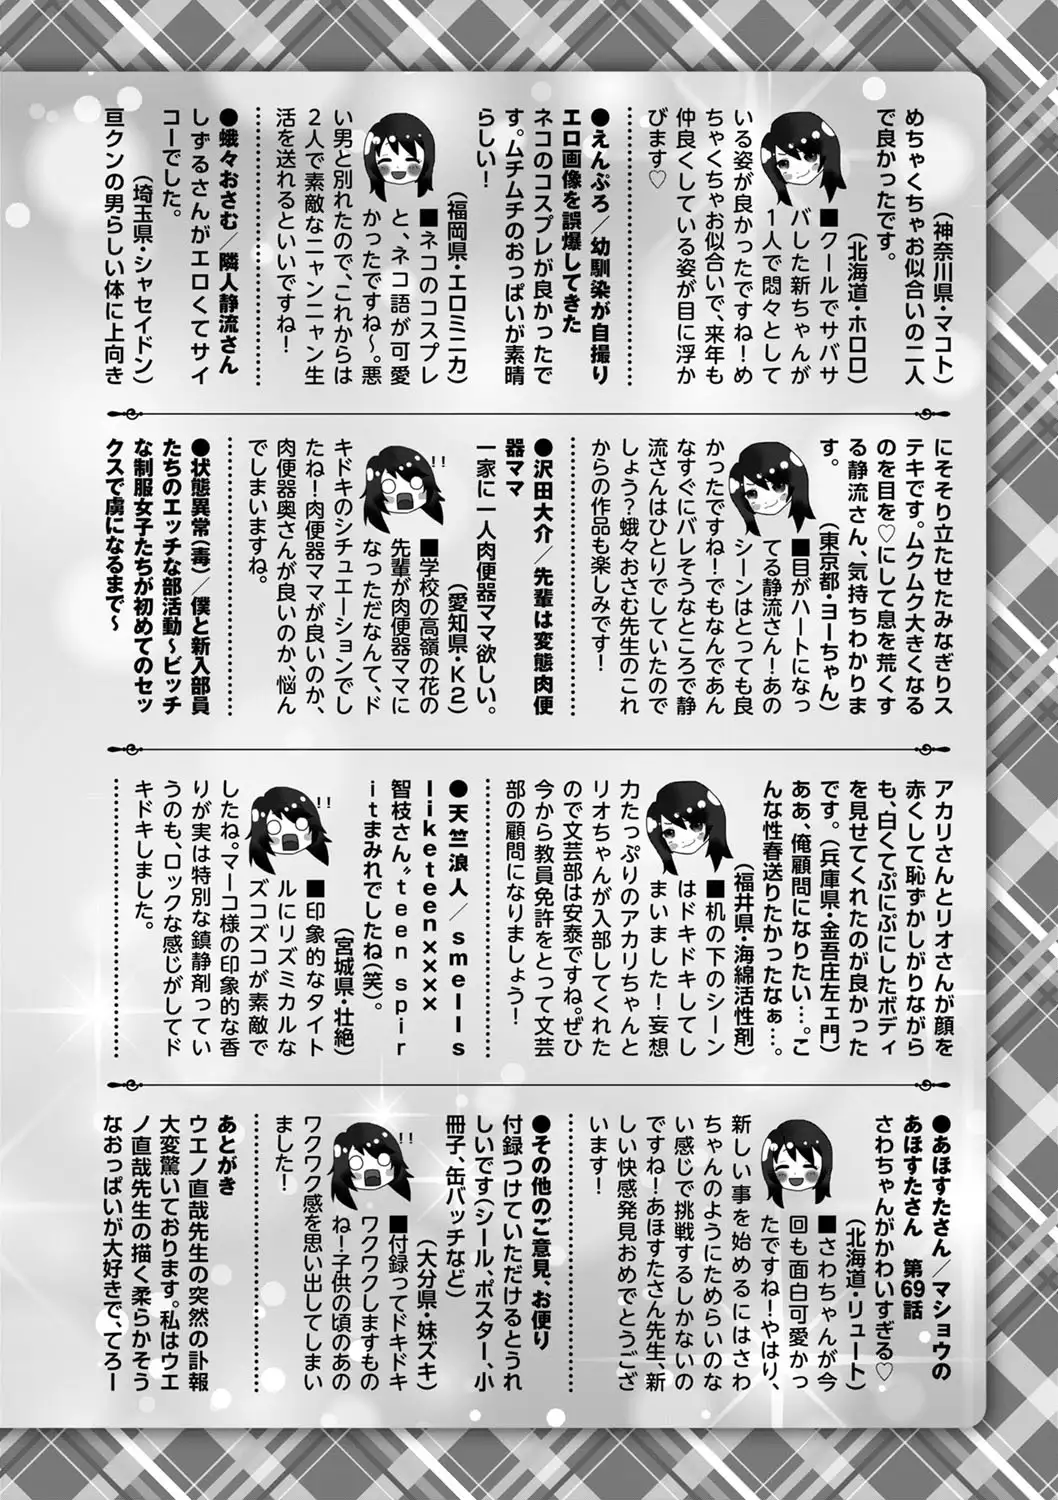 (神奈川県・マコト)
めちゃくちゃお似合いの二人
で良かったです。
(北海道・ホロロ)
■クールでサバサ
バした新ちゃんが
1人で悶々として
いる姿が良かったですね!め
ちゃくちゃお似合いで、来年も
仲良くしている姿が目に浮か
びます♡
●えんぷろ/幼馴染が自撮り
エロ画像を誤爆してきた
ネコのコスプレが良かったで
す。ムチムチのおっぱいが素晴
らしい!
(福岡県・エロミニカ)
■ネコのコスプレ
と、ネコ語が可愛
かったですね〜。悪
い男と別れたので、これからは
2人で素敵なニャンニャン生
活を送れるといいですね!
●蛾々おさむ/隣人静流さん
しずるさんがエロくてサイ
コーでした。
(埼玉県・シャセイドン)
亘クンの男らしい体に上向き
にそそり立たせたみなぎりス
テキです。ムクムク大きくなる
のを目を♡にして息を荒くす
る静流さん、気持ちわかりま
す。
(東京都・ヨーちゃん)
■目がハートになっ
てる静流さん!あの
シーンはとっても良
かったですね!でもなんであん
なすぐにバレそうなところで静
流さんはひとりでしていたので
しょう?蛾々おさむ先生のこれ
からの作品も楽しみです!
●沢田大介/先輩は変態肉便
器ママ
一家に一人肉便器ママ欲しい。
(愛知県・K2)
■学校の高嶺の花の
先輩が肉便器ママに
なっただなんて、ド
キドキのシチュエーションでし
たね!肉便器ママが良いのか、
肉便器奥さんが良いのか、悩ん
でしまいますね。
●状態異常(毒)/僕と新入部員
たちのエッチな部活動〜ビッチ
な制服女子たちが初めてのセッ
クスで虜になるまで〜
アカリさんとリオさんが顔を
赤くして恥ずかしがりながら
も、白くてぷにぷにしたボディ
を見せてくれたのが良かった
です。(兵庫県・金吾庄左ェ門)
ああ、俺顧問になりたい…。こ
んな性春送りたかったなぁ…。
(福井県・海綿活性剤)
■机の下のシーン
はドキドキしてし
まいました!妄想
力たっぷりのアカリちゃんと
リオちゃんが入部してくれた
ので文芸部は安泰ですね。ぜひ
今から教員免許をとって文芸
部の顧問になりましょう!
●天竺浪人/smells
liketeen××××
智枝さん〝teen spir
itまみれでしたね(笑)。
(宮城県・壮絶)
■印象的なタイト
ルにリズミカルな
ズコズコが素敵で
したね。マーコ様の印象的な香
りが実は特別な鎮静剤ってい
うのも、ロックな感じがしてド
キドキしました。
●あほすたさん/マショウの
あほすたさん 第69話
さわちゃんがかわいすぎる♡
(北海道・リュート)
■さわちゃんが今
回も面白可愛かっ
たですね!やはり、
新しい事を始めるにはさわ
ちゃんのようにためらいのな
い感じで挑戦するしかないの
ですね!あほすたさん先生、新
しい快感発見おめでとうござ
います!
●その他のご意見、お便り
付録つけていただけるとうれ
しいです(シール、ポスター、小
冊子、缶バッチなど)
(大分県・妹ズキ)
■付録ってドキドキ
ワクワクしますもの
ね!子供の頃のあの
ワクワク感を思い出してしまい
ました!
あとがき
ウエノ直哉先生の突然の訃報
大変驚いております。私はウエ
ノ直哉先生の描く柔らかそう
なおっぱいが大好きで、てろー